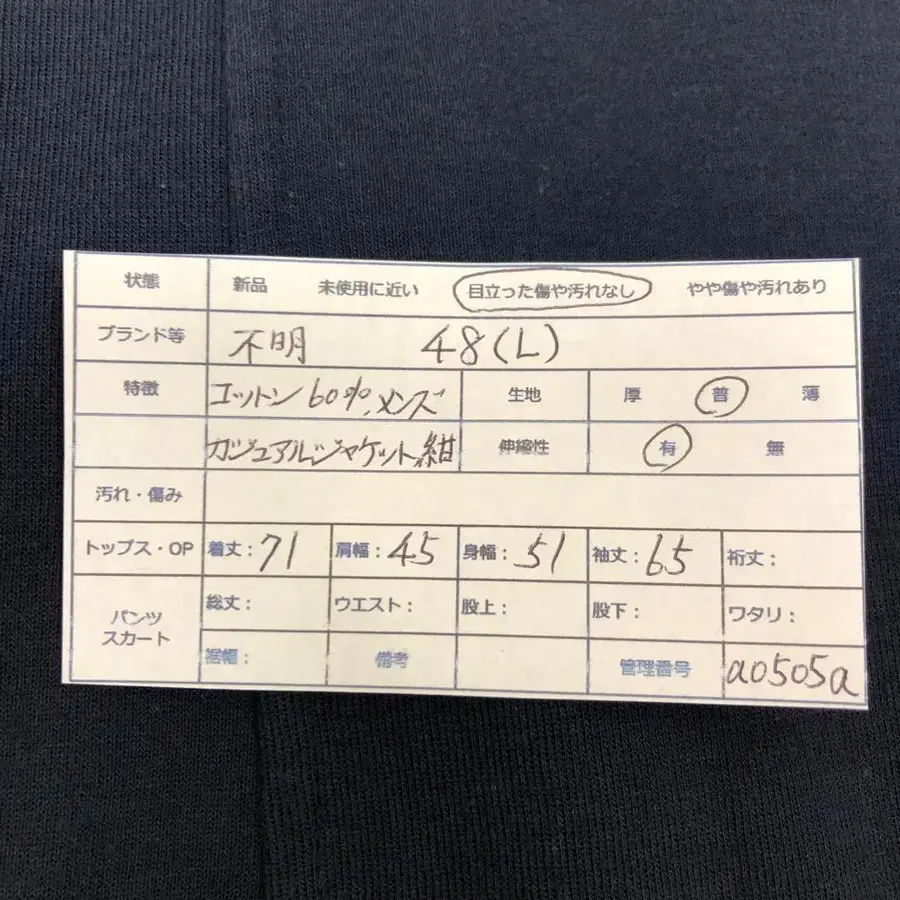 状態 新品 未使用に近い 目立った傷や汚れなし やや傷や汚れあり
ブランド等 不明 48(L)
特徴 コットン60%、メンズ 生地 厚 普 薄
カジュアルジャケット、紺 伸縮性 有 無
汚れ・傷み
トップス・OP 着丈:71 肩幅:45 身幅:51 袖丈:65 裄丈:
パンツ スカート 総丈: ウエスト: 股上: 股下: ワタリ:
裾幅: 備考 管理番号 a0505a